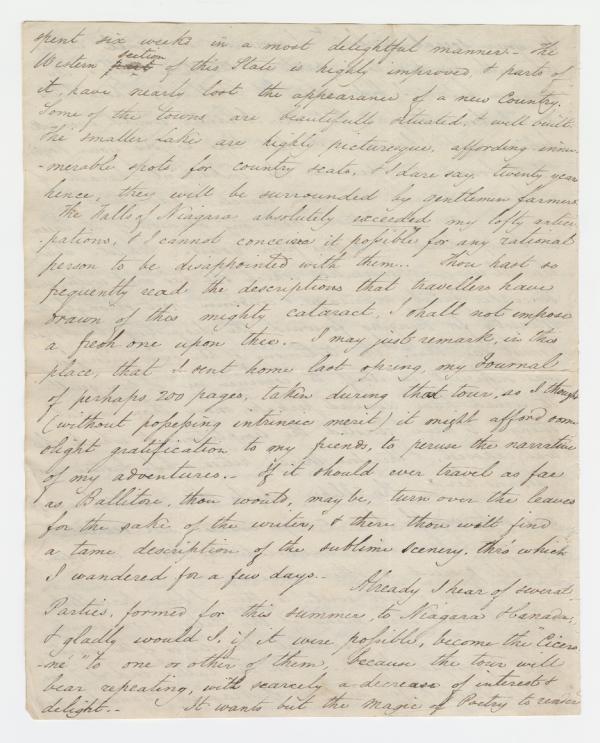 spent six weeks in a most delightful manner.- The
section
Western part of this State is highly improved, & parts of
it, have nearly lost the appearance of a new Country.
Some of the towns are beautifully situated, & well built.
The smaller Lake are highly picturesque, affording innu-
-merable spots for country seats, & I dare say, twenty years
hence, they will be surrounded by gentlemen farmers.
The Falls of Niagara absolutely exceeded my lofty antici-
-pations, & I cannot conceive it possible for any rational
person to be disappointed with them.. Thou hast so
frequently read the descriptions that travellers have
drawn of this mighty cataract, I shall not impose
a fresh one upon thee.- I may just remark, in this
place, that I sent home last spring, my Journal
of perhaps 200 pages, taken during that tour, as I thought
(without possessing intrinsic merit) it might afford some
slight gratification to my friends, to peruse the narrative
of my adventures.- If it should ever travel as far
as Ballitore, thou would, may be, turn over the leaves
for the sake of the writer, & there thou wilt find
a tame description of the sublime scenery, thro' which
I wandered for a few days.- Already I hear of several
Parties, formed for this summer, to Niagara & Canada,
& gladly would I, if it were possible, become the "Cicero-
-ne" to one or other of them, because the tour will
bear repeating, with scarcely a decrease of interest &
delight.- It wants but the magic of Poetry to render